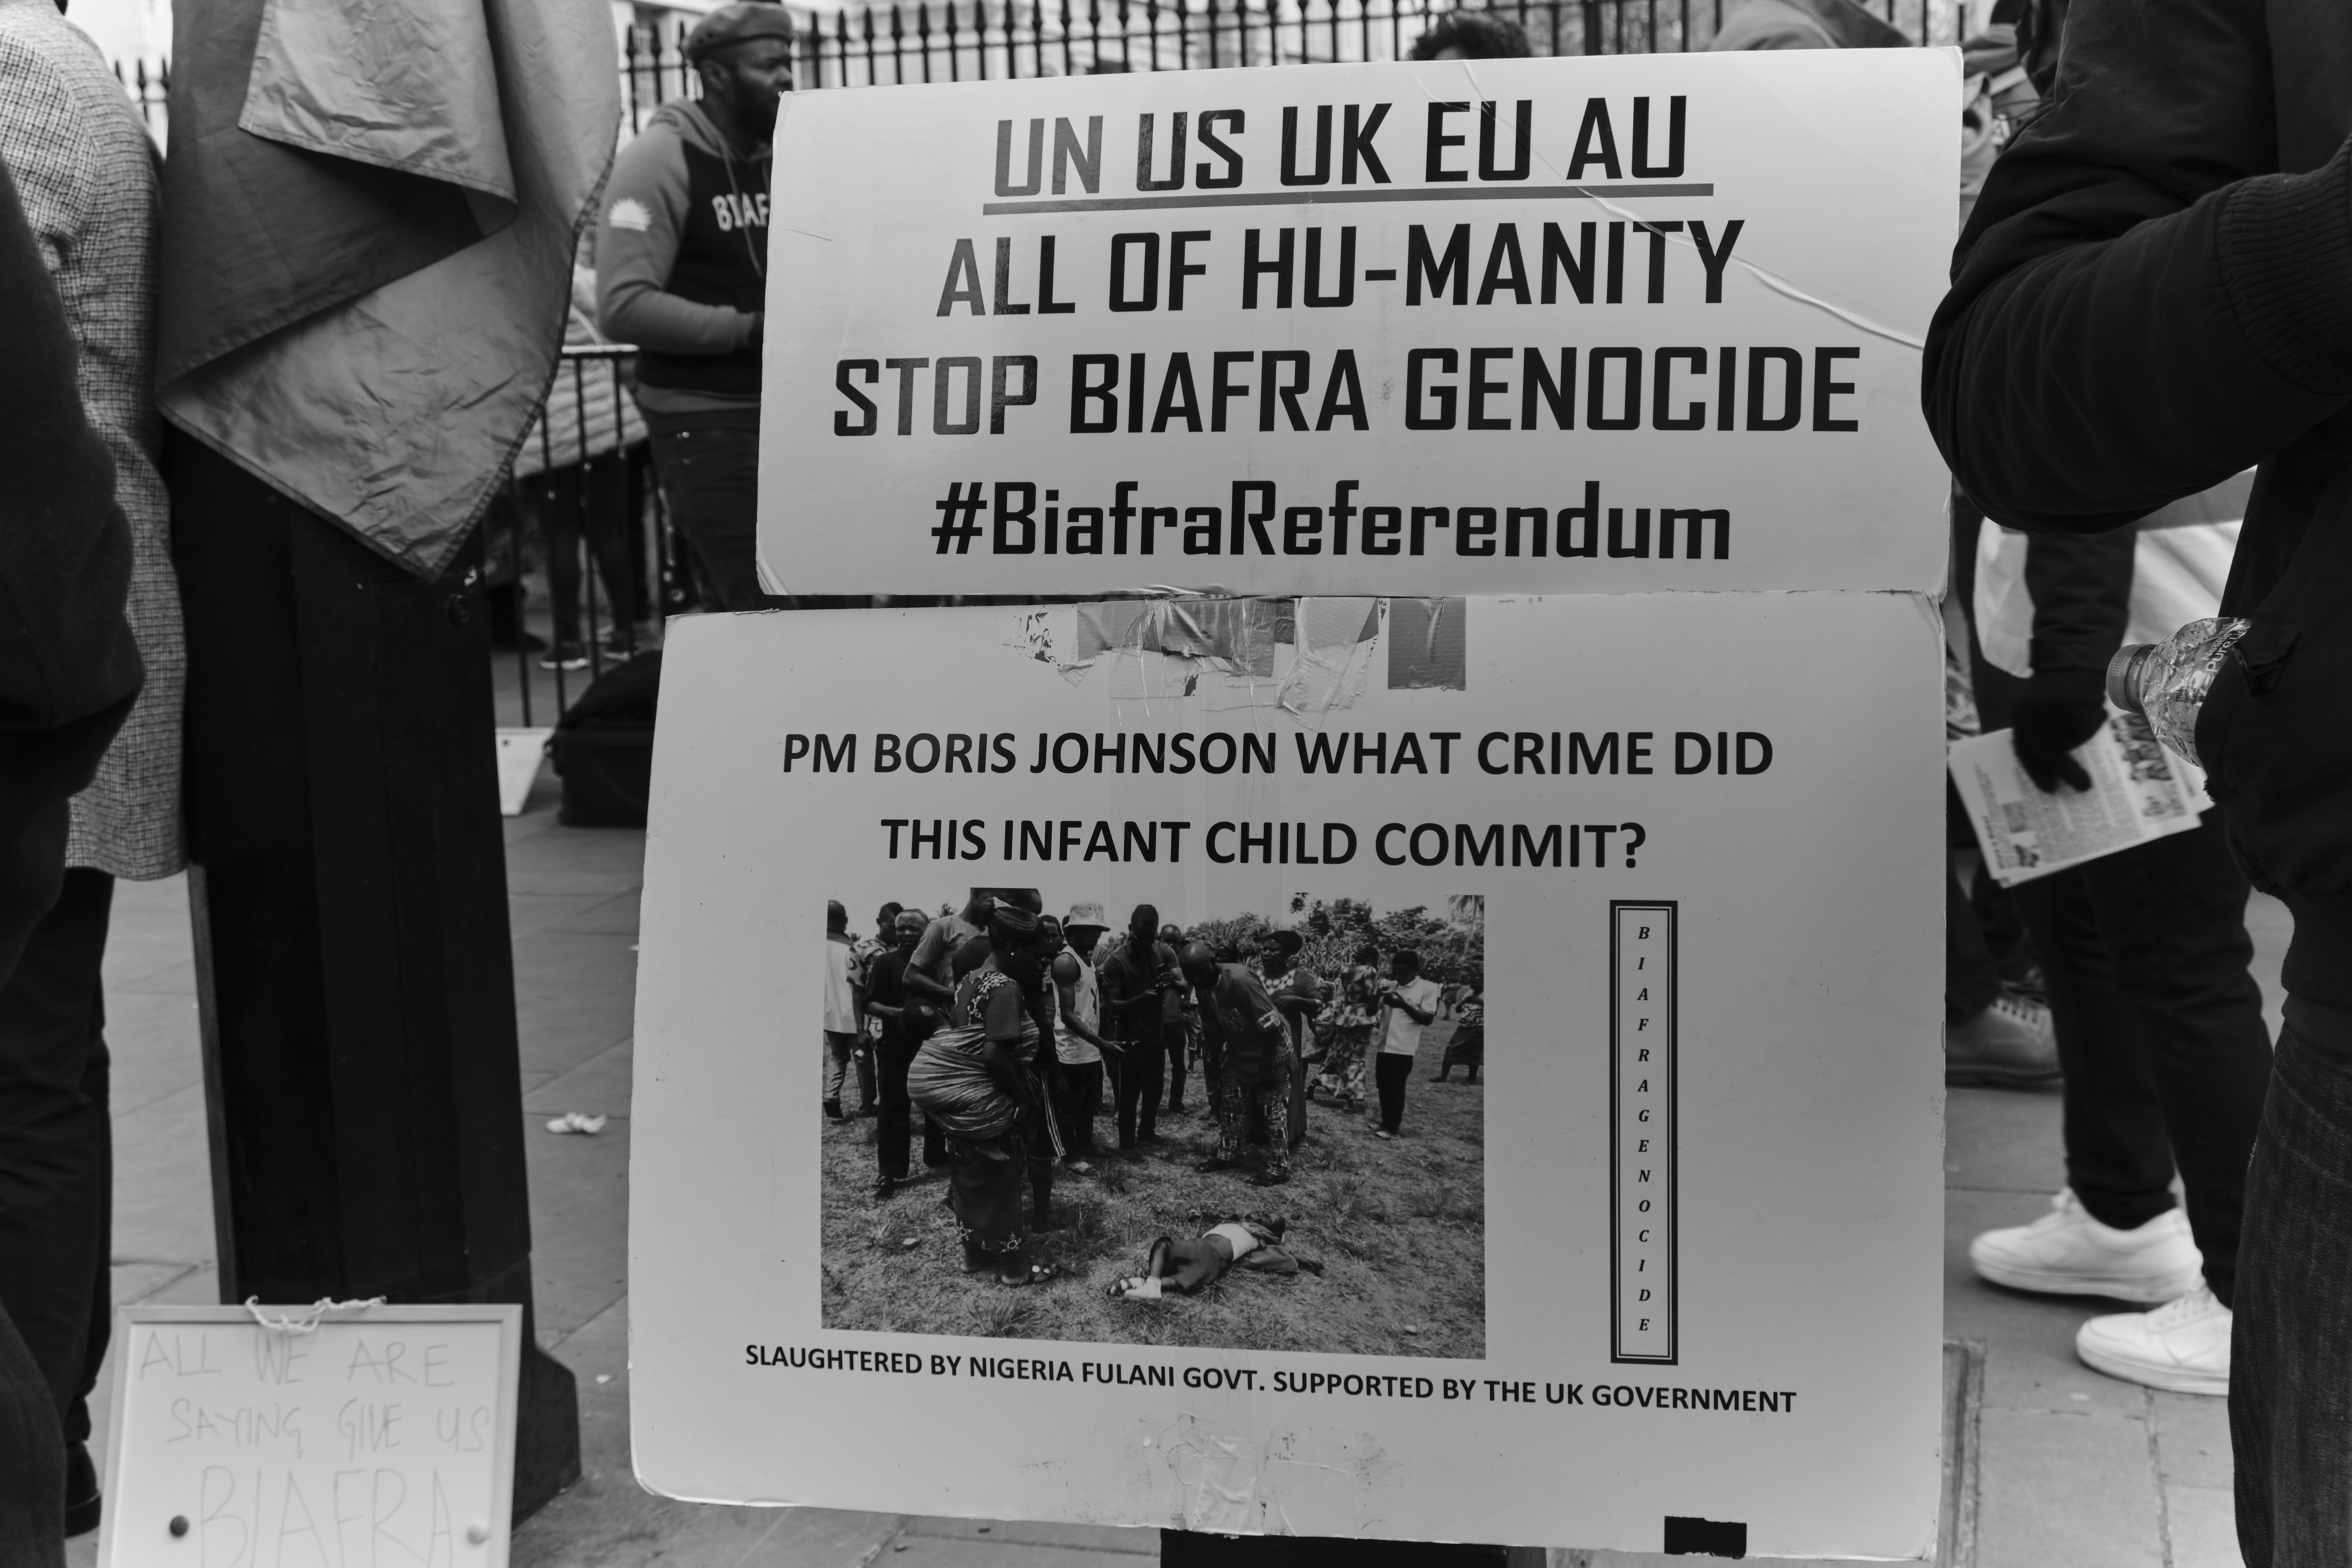 UN US UK EU AU
ALL OF HU-MANITY
STOP BIAFRA GENOCIDE
#BiafraReferendum
PM BORIS JOHNSON WHAT CRIME DID
THIS INFANT CHILD COMMIT?
BIAFRAGENOCIDE
SLAUGHTERED BY NIGERIA FULANI GOVT. SUPPORTED BY THE UK GOVERNMENT
ALL WE ARE
SAYING GIVE US
BIAFRA
BIAF
Pure